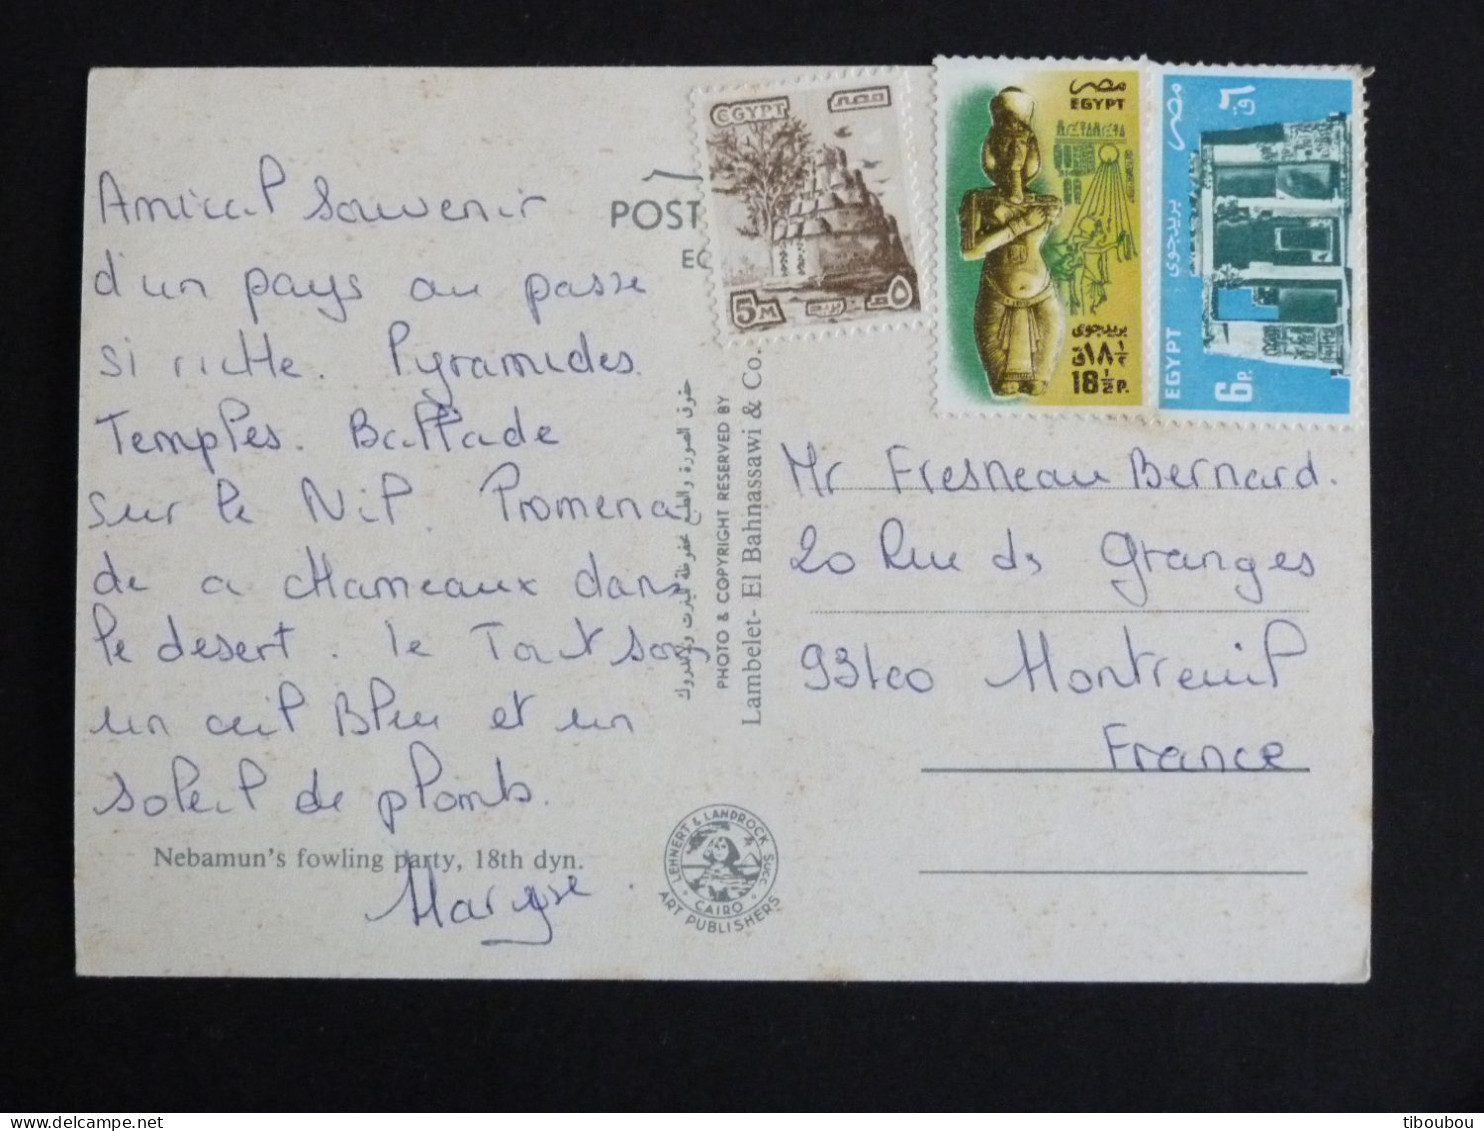 Amical souvenir
d'un pays au passe
si riche. Pyramides
Temples. Ballade
sur le Nil. Promena
de a chameaux dans
le desert. le Tout sous
un ciel Bleu et un
soleil de plomb.
Nebamun's fowling party, 18th dyn.
Maryse
POST
EG
حقوق الصورة والطبع محفوظة
PHOTO & COPYRIGHT RESERVED BY
Lambelet - El Bahnassawi & Co.
LEHNERT & LANDROCK SUCC
CAIRO
ART PUBLISHERS
EGYPT
مصر
5M
٥م
مصر
EGYPT
بريد جوى
١٨ ١/٢ق
18 1/2 P.
مصر
٦ق
بريد جوى
EGYPT
6P.
Mr Fresneau Bernard.
20 Rue des Granges
93100 Montreuil
France
tiboubou